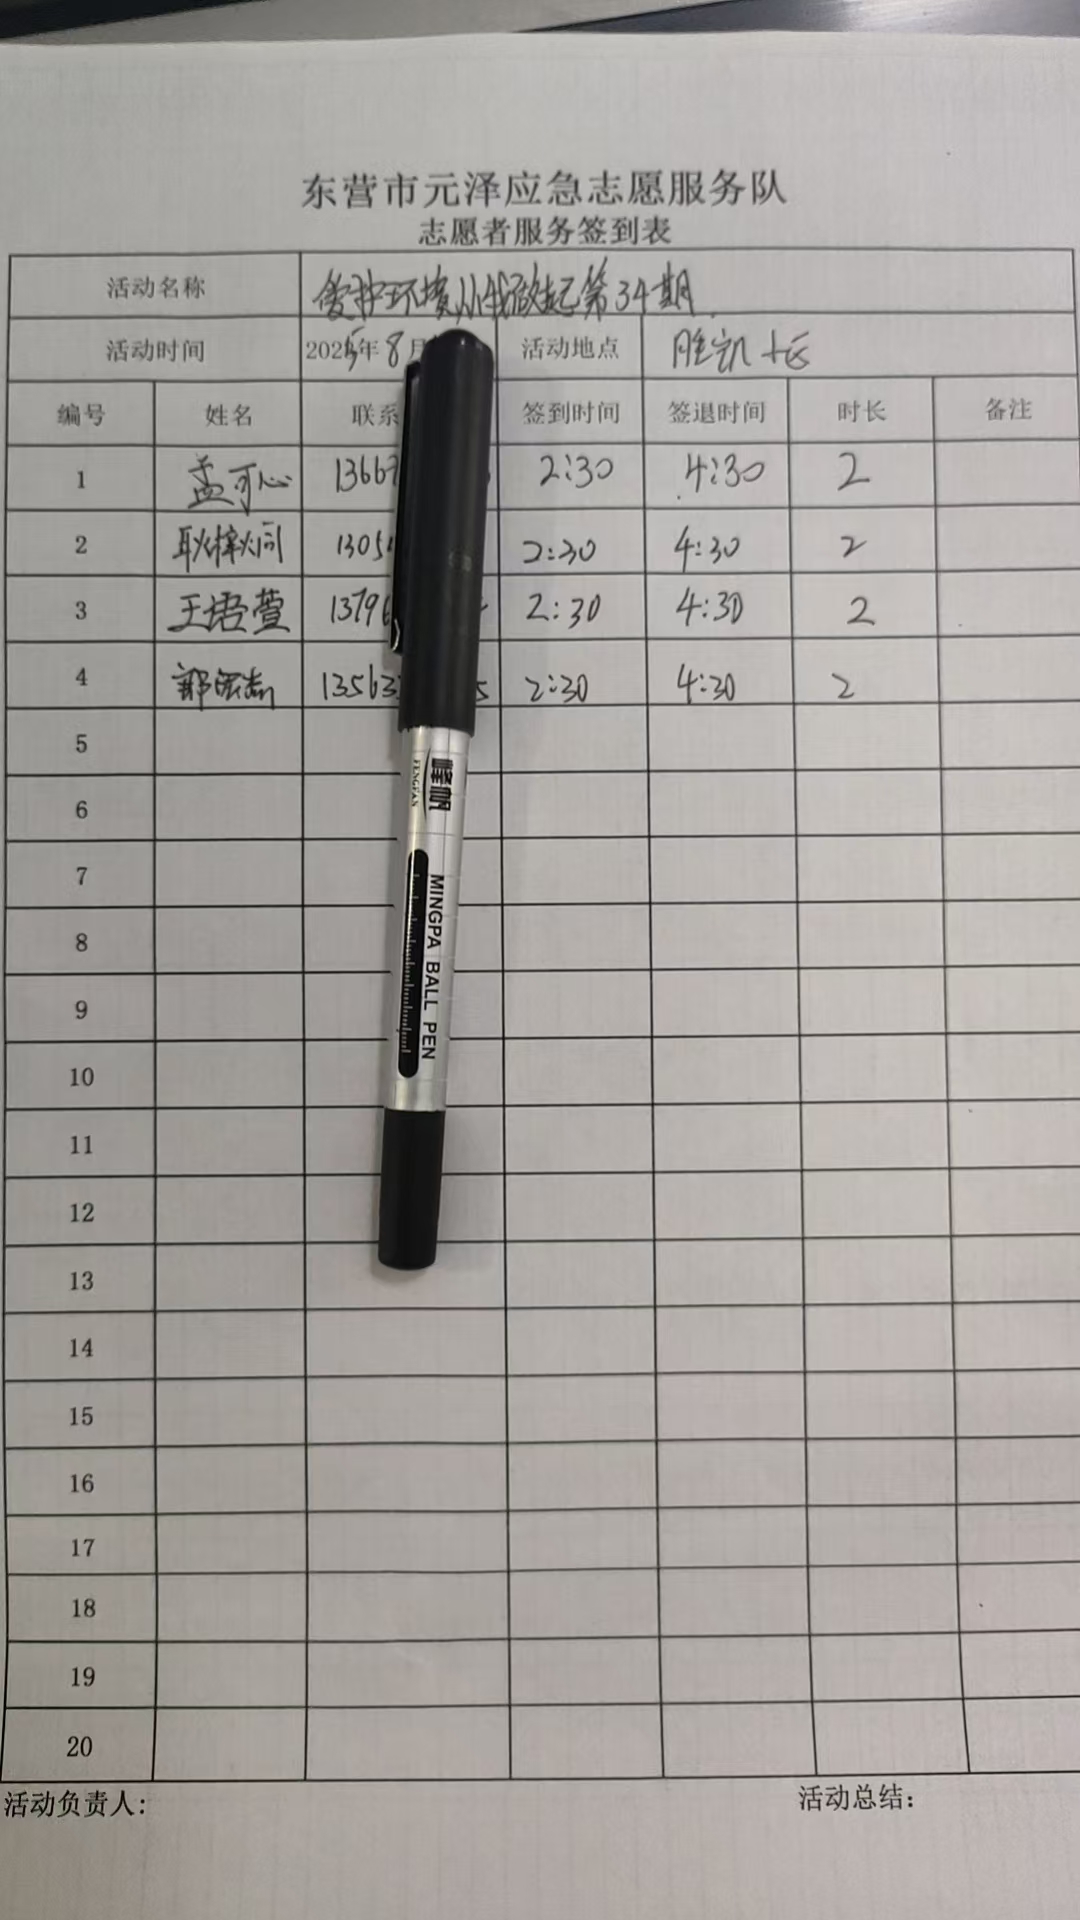 东营市元泽应急志愿服务队
志愿者服务签到表
活动名称 爱护环境从我做起第34期
活动时间 2025年8月 活动地点 胜凯
编号 姓名 联系 签到时间 签退时间 时长 备注
1 孟可心 13667 2:30 4:30 2
2 1305 2:30 4:30 2
3 王语萱 1379 2:30 4:30 2
4 13563 5 2:30 4:30 2
5
6
7
8
9
10
11
12
13
14
15
16
17
18
19
20
活动负责人: 活动总结:
峰帆
FENGFAN
MINGPA BALL PEN